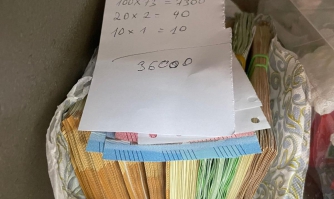 100 x 13 = 1300
20 x 2 = 40
10 x 1 = 10
36000